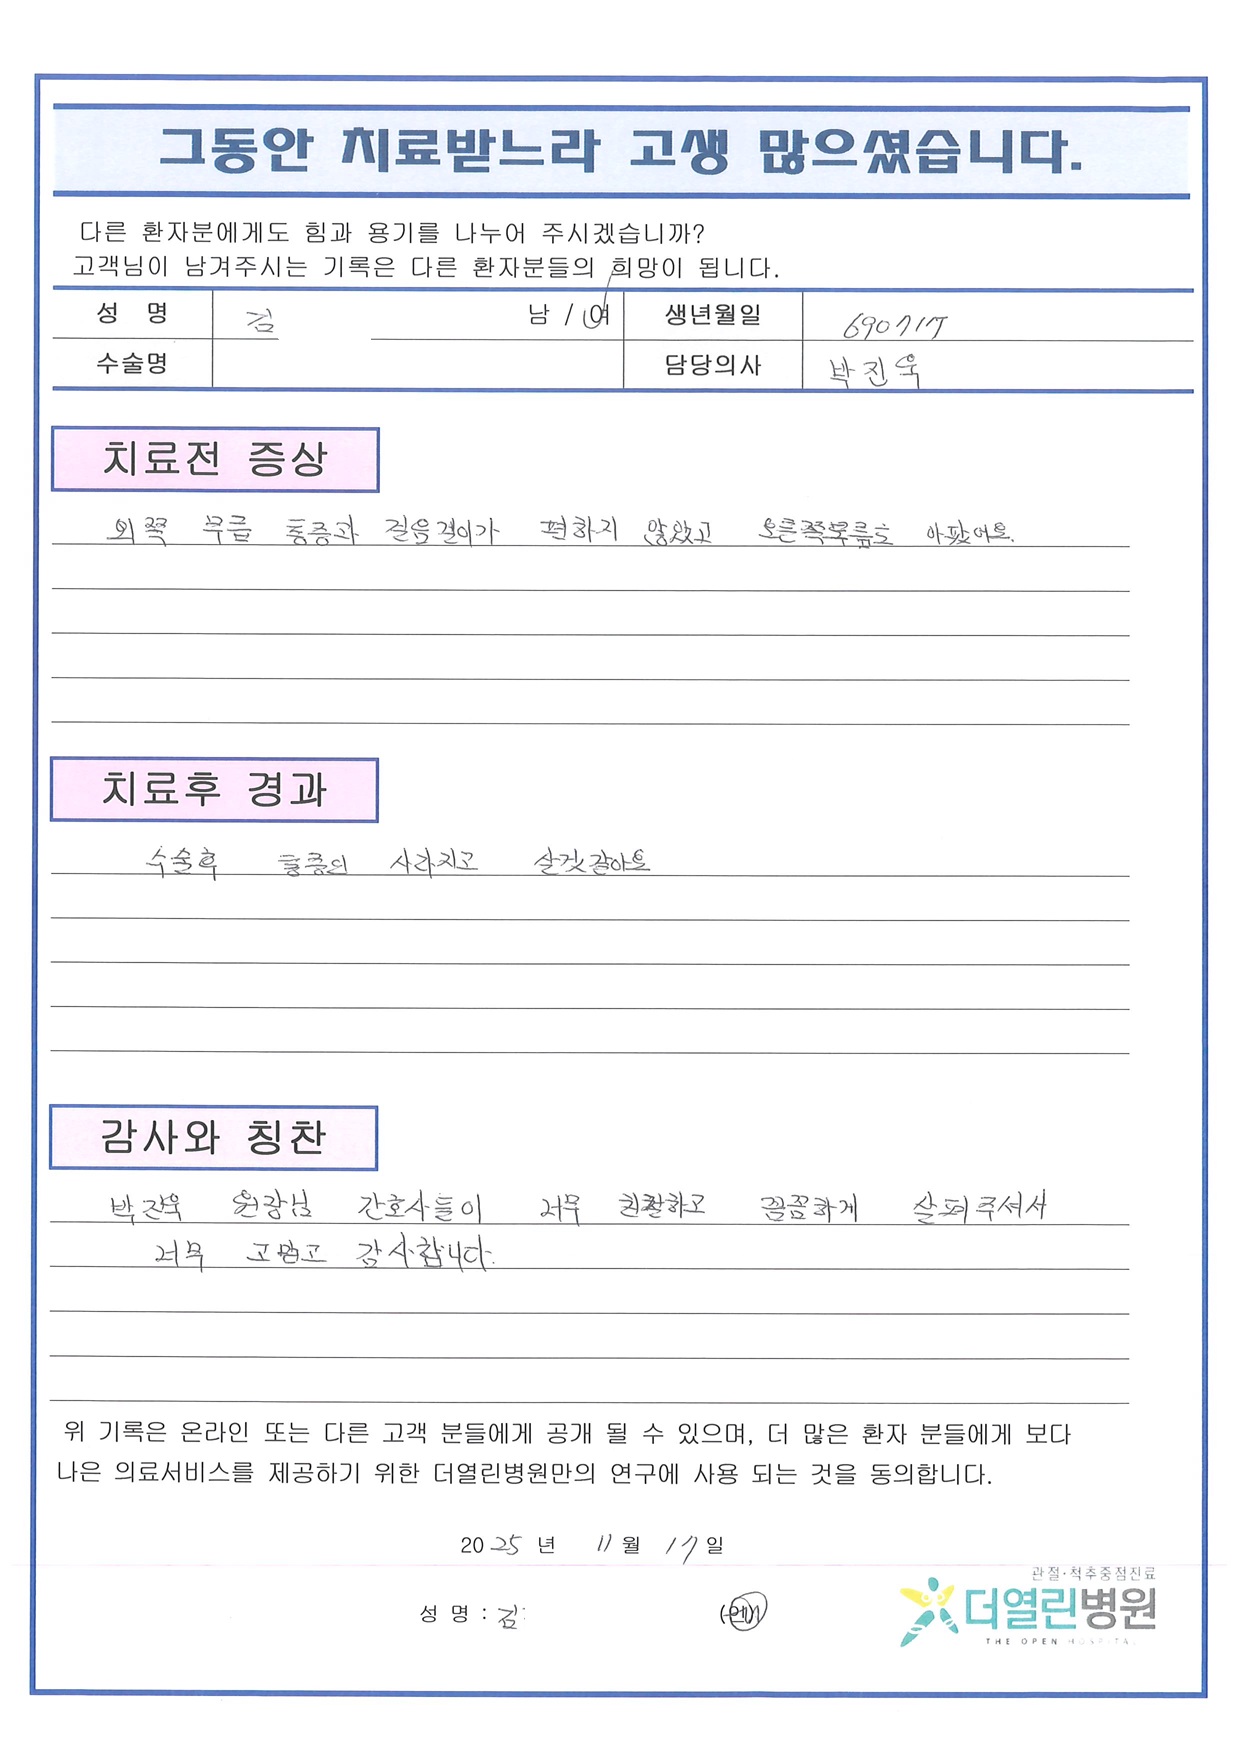 그동안 치료받느라 고생 많으셨습니다.
다른 환자분에게도 힘과 용기를 나누어 주시겠습니까?
고객님이 남겨주시는 기록은 다른 환자분들의 희망이 됩니다.
성 명 김 남 / 여 생년월일 690717
수술명 담당의사 박진욱
치료전 증상
외쪽 무릎 통증과 걸음걸이가 편하지 않았고 오른쪽무릎도 아팠어요.
치료후 경과
수술후 통증이 사라지고 살것같아요
감사와 칭찬
박진욱 원장님 간호사들이 너무 친절하고 꼼꼼하게 살펴주셔서
너무 고맙고 감사합니다.
위 기록은 온라인 또는 다른 고객 분들에게 공개 될 수 있으며, 더 많은 환자 분들에게 보다
나은 의료서비스를 제공하기 위한 더열린병원만의 연구에 사용 되는 것을 동의합니다.
2025 년 11 월 17 일
관절·척추중점진료
성 명 : 김 (인)
더열린병원
THE OPEN HOSPITAL